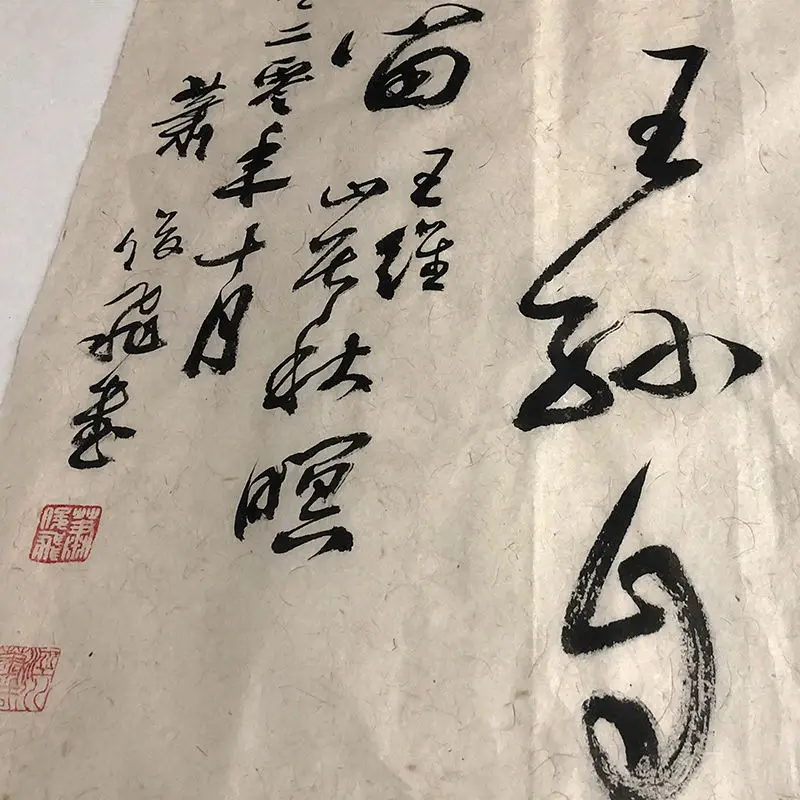 王孙自
留
王維
山居秋暝
二零年十月
蕭俊飛書
蕭俊飛